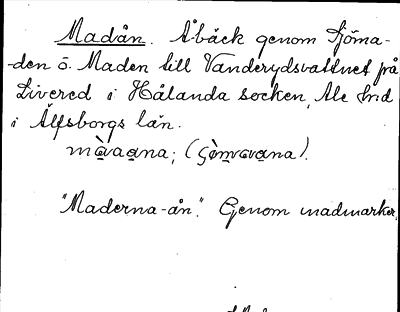 Madån. Åbäck genom Sjöma-
-den o. Maden till Vanderydsvattnet på
Livered i Hålanda socken, Ale Hrd
i Älfsborgs län.
"Maderna-ån". Genom madmarker.